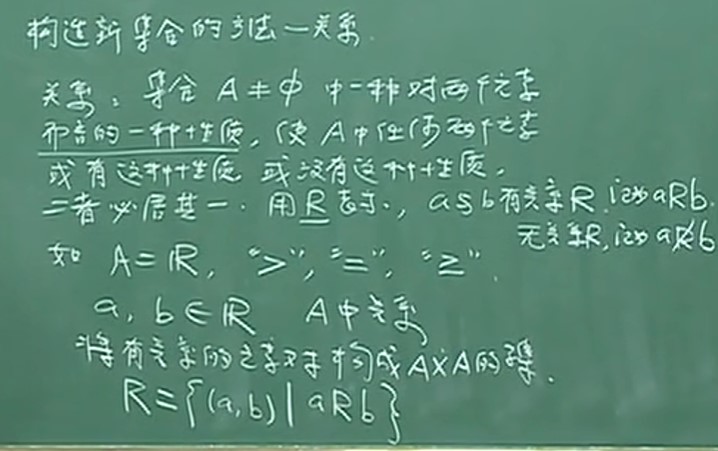 构造新集合的方法一关系.
关系: 集合 A≠∅ 中一种对两个元素
而言的一种性质, 使 A 中任何两个元素
或有这种性质 或没有这种性质,
二者必居其一. 用 R 表示, a与b有关系R, 记为aRb.
无关系R, 记为aR̸b
如 A=ℝ, “>”, “=”, “≥”.
a, b∈ℝ A中关系
将有关系的元素对构成A×A的子集.
R={(a,b)|aRb}